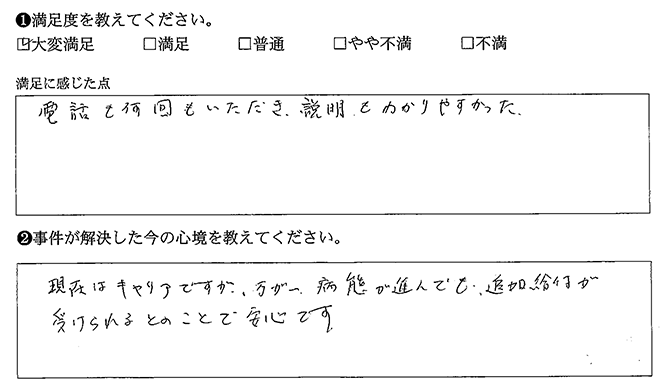 ❶満足度を教えてください。
☑大変満足 □満足 □普通 □やや不満 □不満
満足に感じた点
電話も何回もいただき、説明もわかりやすかった。
❷事件が解決した今の心境を教えてください。
現在はキャリアですが、万が一病態が進んでも、追加給付が
受けられるとのことで安心です。